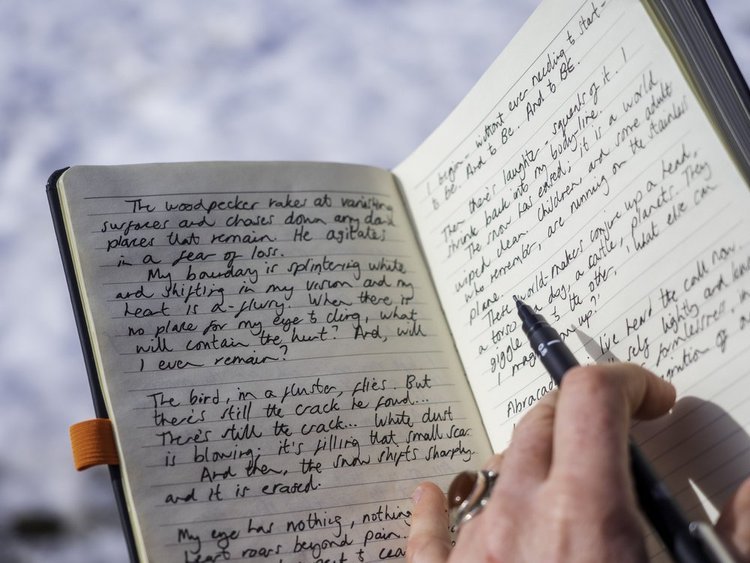 The woodpecker rakes at vanishing
surfaces and chases down any dark
places that remain. He agitates
in a fear of loss.
My boundary is splintering white
and shifting in my vision and my
heart is a-flurry. When there is
no place for my eye to cling, what
will contain the hurt? And, will
I even remain?
The bird, in a fluster, flies. But
there's still the crack he found...
There's still the crack... White dust
is blowing; it's filling that small scar.
And then, the snow shifts sharply
and it is erased.
My eye has nothing, nothing
heart roars beyond pain.
to cea
I begin - without ever needing to start -
to be. And to Be. And to BE.
Then there's laughter - squeals of it. I
shrink back into my body-line.
The snow has eased; it is a world
wiped clean. Children, and some adults
who remember, are running on the stainless
plane.
These world-makers conjure up a head,
a torso, a dog, a castle, planets. They
giggle to the other, 'what else can
I up?'
Abracad I've heard the call now.
self lightly and
formlessness.
of